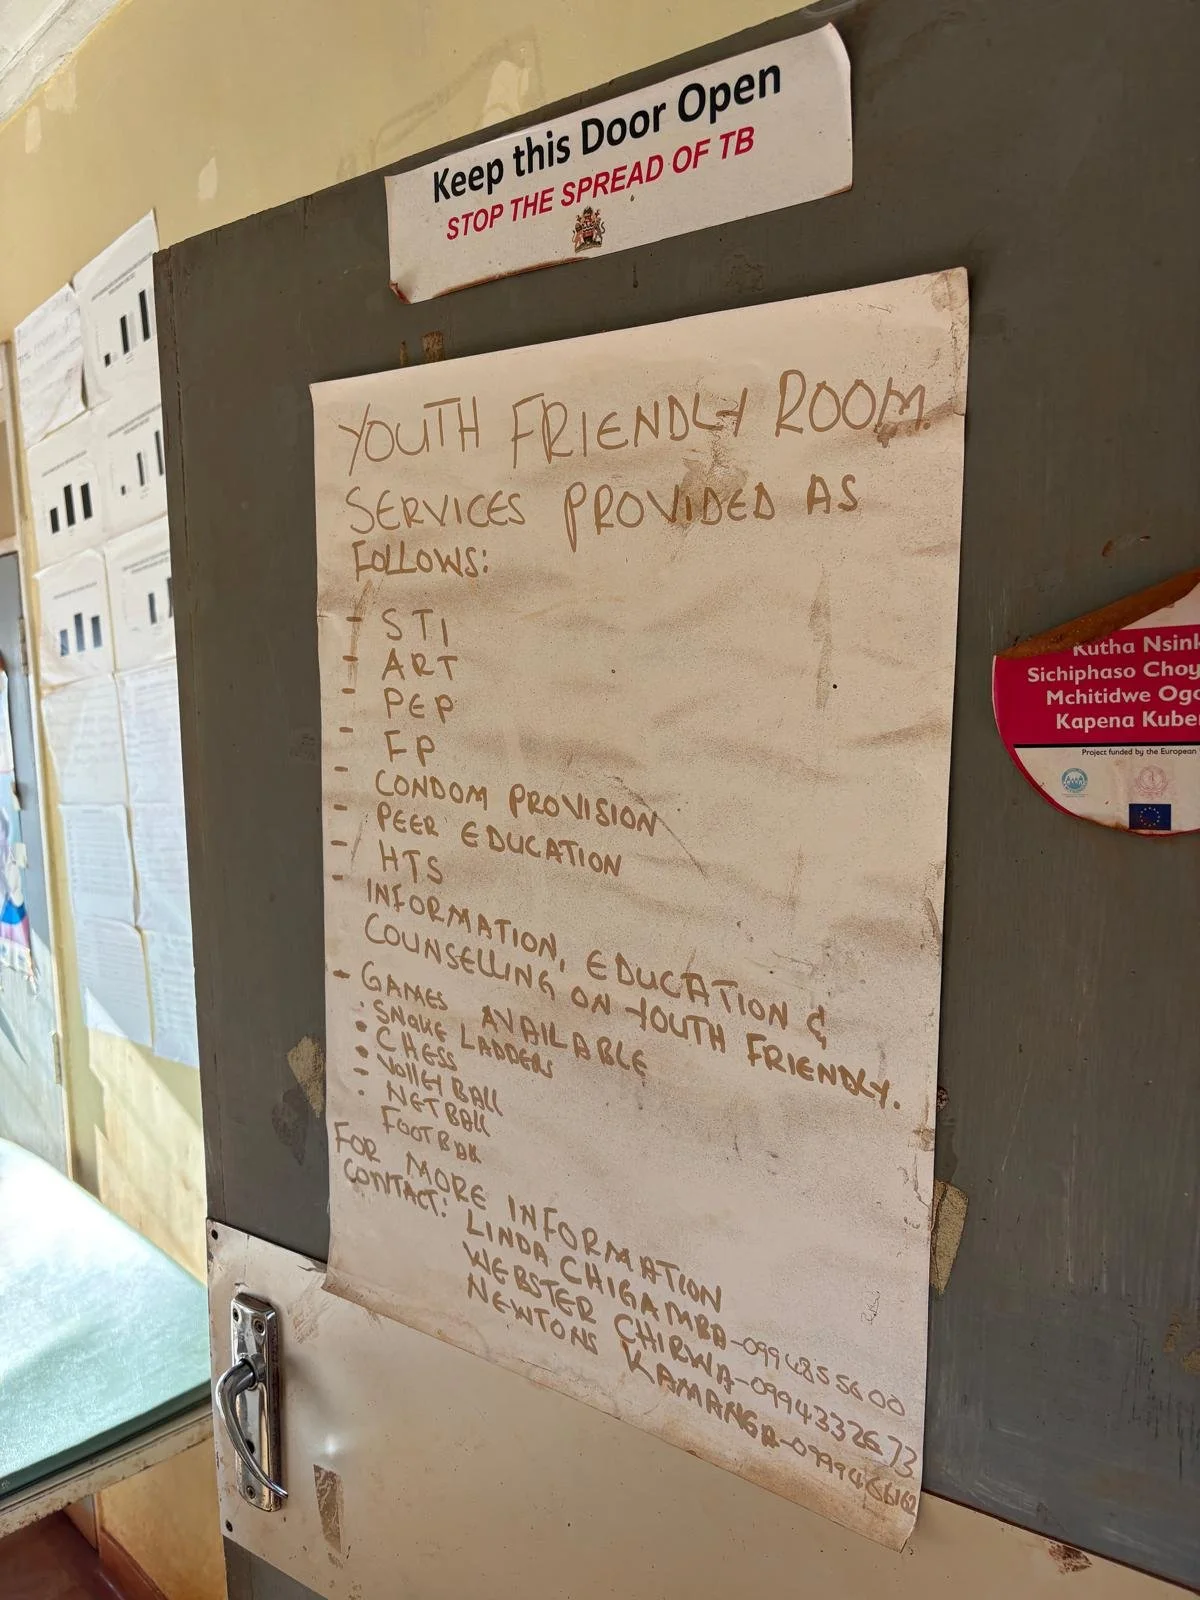 Keep this Door Open
STOP THE SPREAD OF TB
YOUTH FRIENDLY ROOM
SERVICES PROVIDED AS
FOLLOWS:
- STI
- ART
- PEP
- FP
- CONDOM PROVISION
- PEER EDUCATION
- HTS
- INFORMATION, EDUCATION &
COUNSELLING ON YOUTH FRIENDLY.
- GAMES AVAILABLE
• SNAKE LADDERS
• CHESS
• VOLLEYBALL
- NETBALL
FOOTBALL
FOR MORE INFORMATION
CONTACT: LINDA CHIGAMBA-0994855600
WEBSTER CHIRWA-0994332673
NEWTONS KAMANGA-0999466162
Kutha Nsink
Sichiphaso Choy
Mchitidwe Ogo
Kapena Kube
Project funded by the European